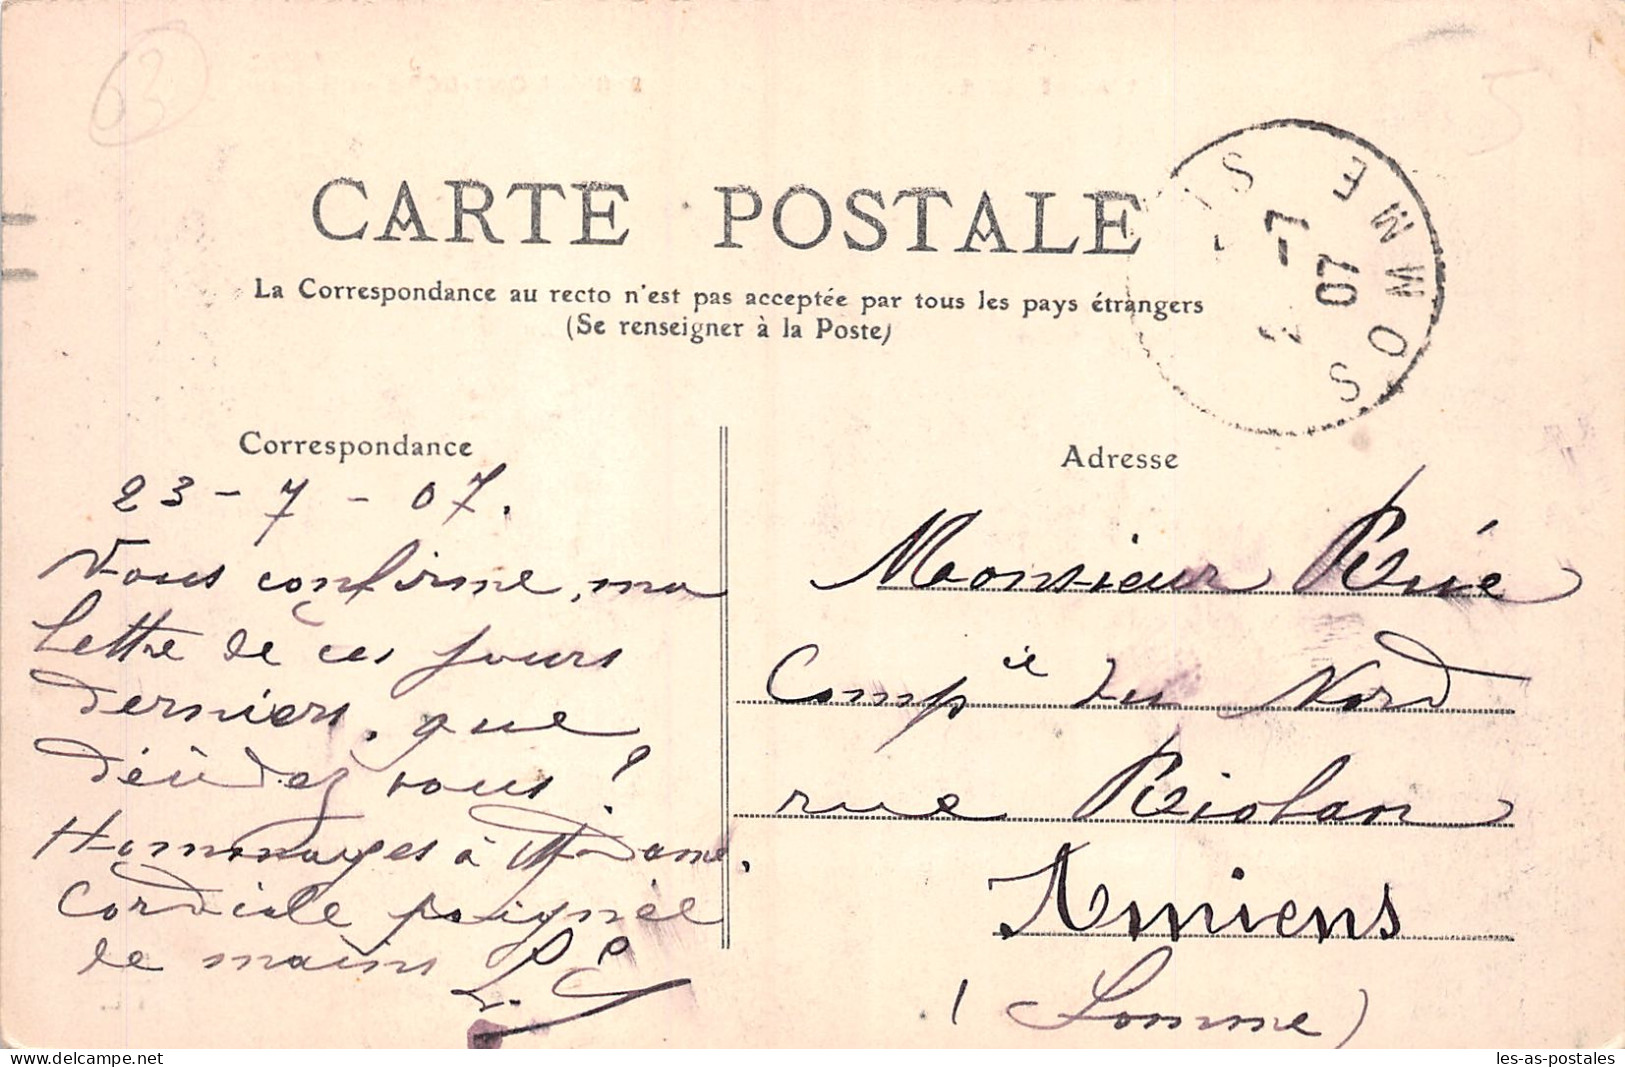 63
5
CARTE POSTALE
La Correspondance au recto n'est pas acceptée par tous les pays étrangers
(Se renseigner à la Poste)
SOMME
-7
07
Correspondance
23 - 7 - 07.
Vous confirme, ma
lettre de ces jours
derniers, que
décidez vous ?
Hommages à Madame.
Cordiale poignée
de mains
Adresse
Monsieur Rué
Comp ie du Nord
rue Riolan
Amiens
(Somme)
les-as-postales
delcampe.net